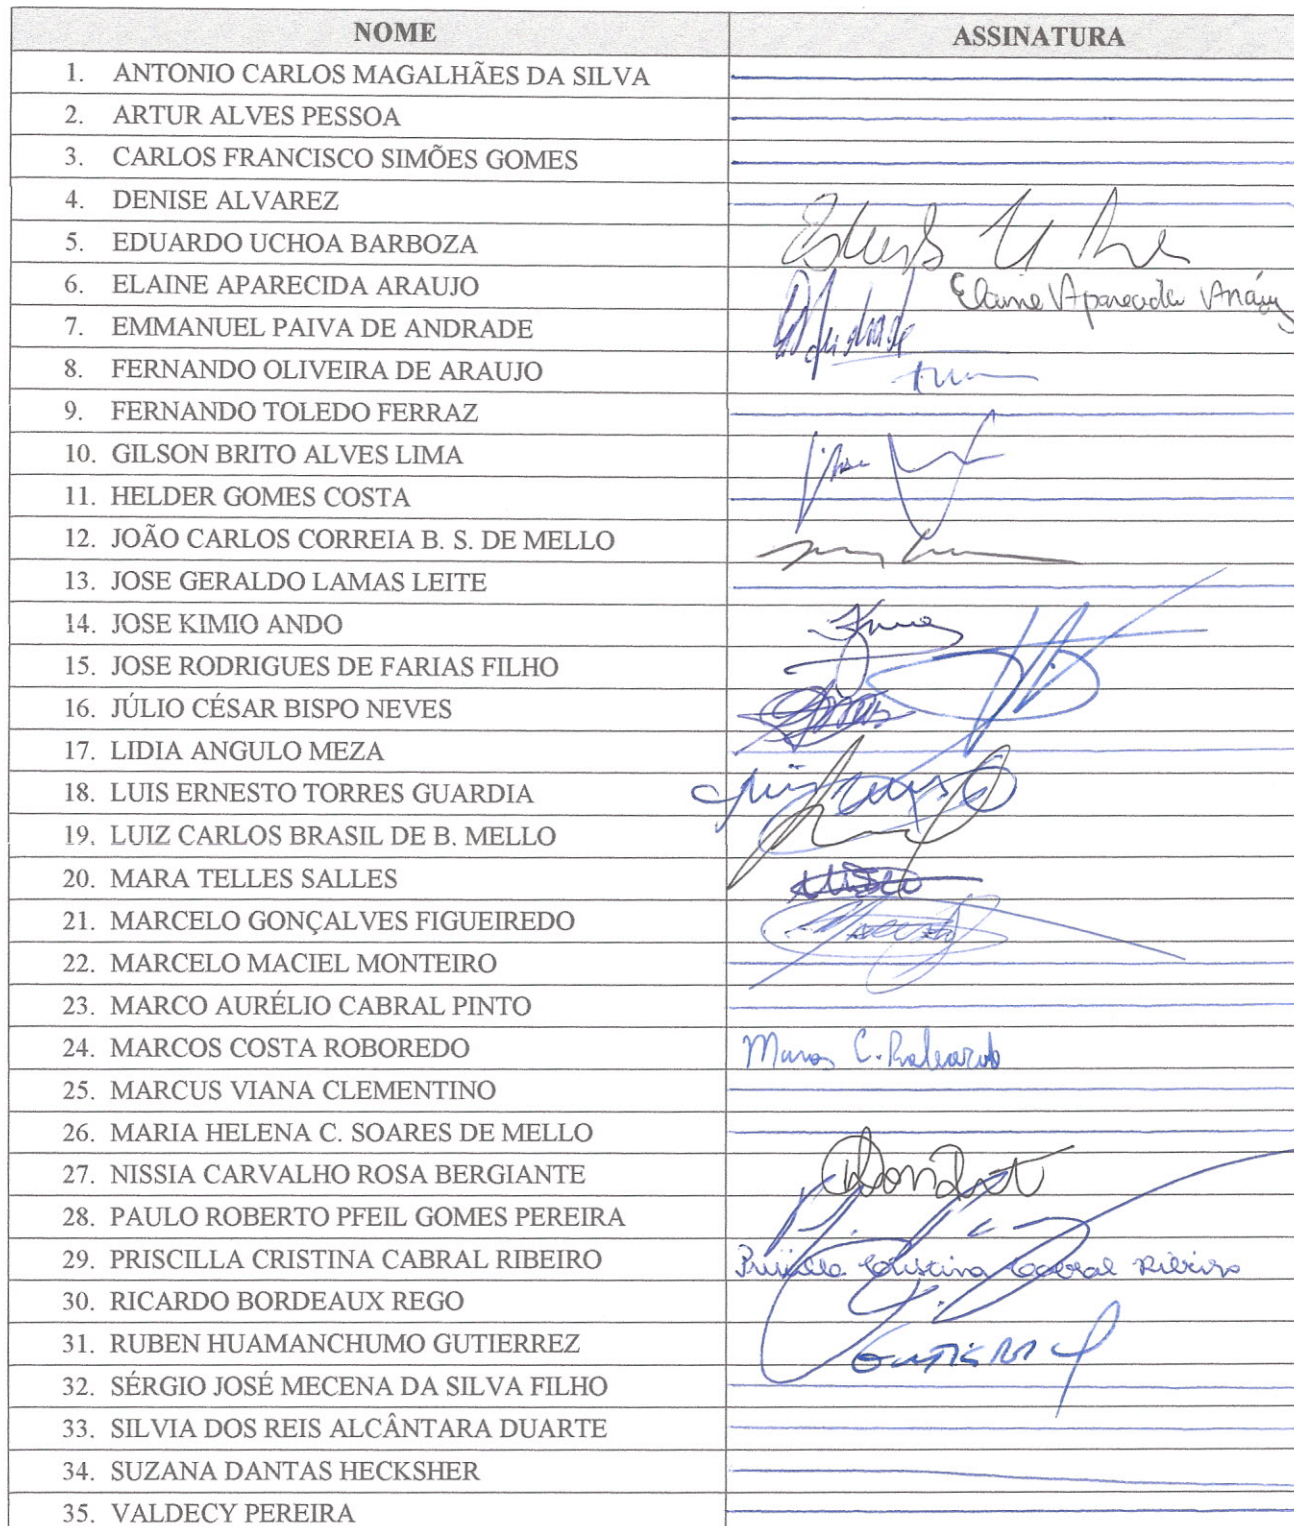 NOME ASSINATURA
1. ANTONIO CARLOS MAGALHÃES DA SILVA
2. ARTUR ALVES PESSOA
3. CARLOS FRANCISCO SIMÕES GOMES
4. DENISE ALVAREZ
5. EDUARDO UCHOA BARBOZA
6. ELAINE APARECIDA ARAUJO Elaine Aparecida Araújo
7. EMMANUEL PAIVA DE ANDRADE
8. FERNANDO OLIVEIRA DE ARAUJO
9. FERNANDO TOLEDO FERRAZ
10. GILSON BRITO ALVES LIMA
11. HELDER GOMES COSTA
12. JOÃO CARLOS CORREIA B. S. DE MELLO
13. JOSE GERALDO LAMAS LEITE
14. JOSE KIMIO ANDO
15. JOSE RODRIGUES DE FARIAS FILHO
16. JÚLIO CÉSAR BISPO NEVES
17. LIDIA ANGULO MEZA
18. LUIS ERNESTO TORRES GUARDIA
19. LUIZ CARLOS BRASIL DE B. MELLO
20. MARA TELLES SALLES
21. MARCELO GONÇALVES FIGUEIREDO
22. MARCELO MACIEL MONTEIRO
23. MARCO AURÉLIO CABRAL PINTO
24. MARCOS COSTA ROBOREDO Marcos C. Roboredo
25. MARCUS VIANA CLEMENTINO
26. MARIA HELENA C. SOARES DE MELLO
27. NISSIA CARVALHO ROSA BERGIANTE
28. PAULO ROBERTO PFEIL GOMES PEREIRA
29. PRISCILLA CRISTINA CABRAL RIBEIRO Priscilla Cristina Cabral Ribeiro
30. RICARDO BORDEAUX REGO
31. RUBEN HUAMANCHUMO GUTIERREZ
32. SÉRGIO JOSÉ MECENA DA SILVA FILHO
33. SILVIA DOS REIS ALCÂNTARA DUARTE
34. SUZANA DANTAS HECKSHER
35. VALDECY PEREIRA